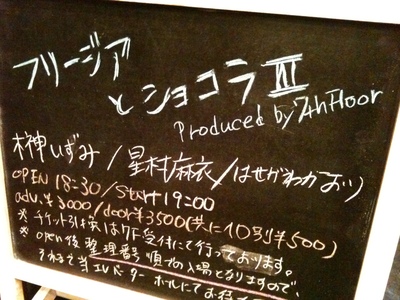 フリージア
とショコラⅢ
Produced by 7thFloor
榊いずみ/星村麻衣/はせがわかおり
OPEN 18:30/Start 19:00
adv.¥3000/door¥3500(共に1D別¥500)
※チケット引換は7F受付にて行っております。
※open後整理番号順での入場となりますので、
それまで当エレベーターホールにてお待